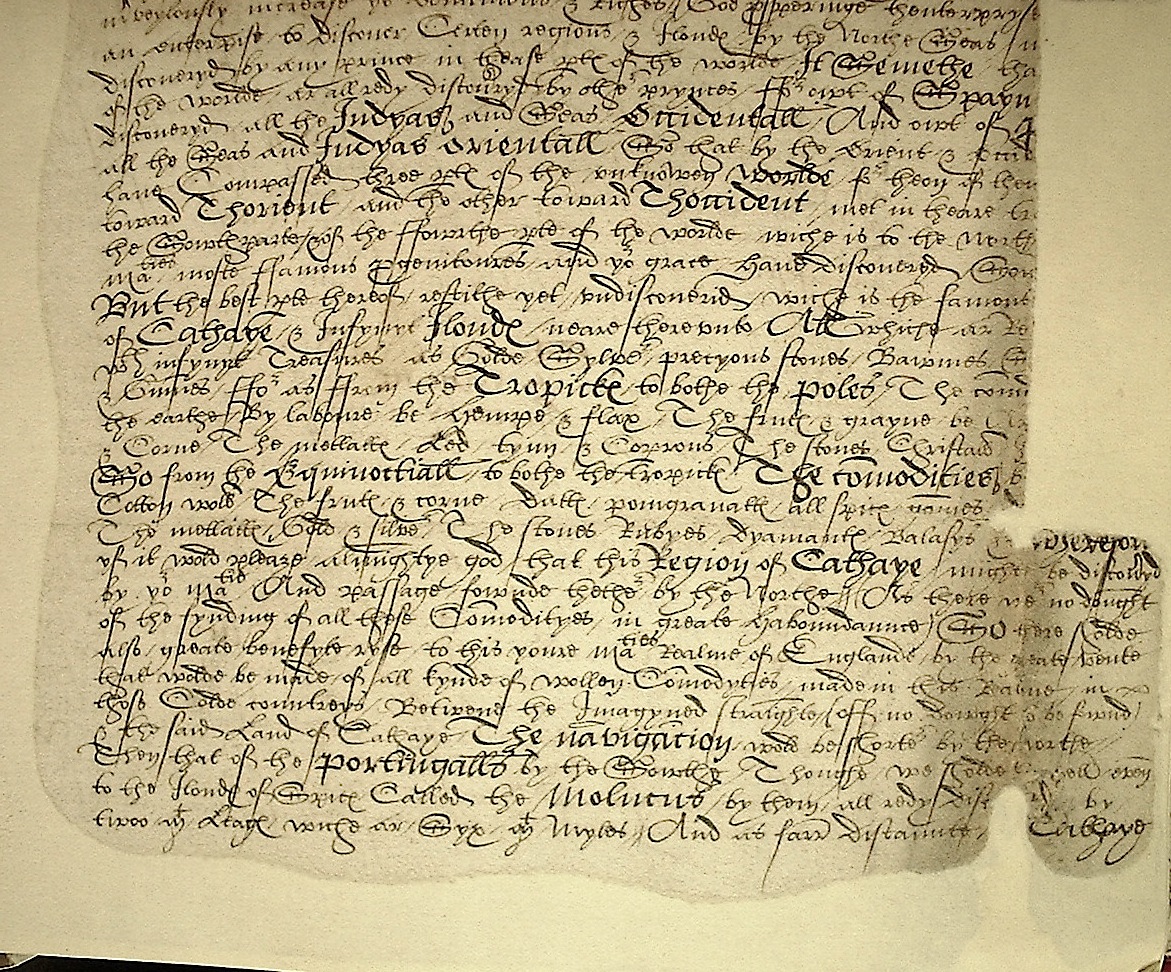 increase yor Dominions & Riches / God prosperinge thenterpryse
an enterpise to discouer Certen regions & Ilondꝭ / by the Northe Seas /
discoueryd by any prince in thease ptꝭ of the worlde / It Semethe / tha
of the worlde / ar all redy discouryd by other prynces / ffor owt of Spayn
discoueryd / all the Indyas and Seas / Occidentall / And owt of
all the Seas and Indyas orientall / So that by the Orient & occid
haue Compassed three ptꝭ of the vnknowen worlde / for theon of them
toward Thorient / and the other toward Thoccident / met in theare
the Sowth parte / of the ffowrthe pte of the worlde / wiche is to the North
maties moste ffamous progenitoures / and yor grace haue discoueryd /
But the best pte thereof / restithe yet / vndiscouerid / wiche is the famous
of Cathaye / & Infynyt Ilondꝭ / neare therevnto All whiche ar
wth infynyt Treasures / as Golde Sylver / precyons stones / Bawmes
& Gumes / ffor as ffrom the Tropickꝭ / to bothe the poles / The com
the earthe / By laboure be Hempe & flax / The frutꝭ & grayne be
& Corne / The mettallꝭ / Led / tynn / & Coprous / The stones Christall
So from the Equinoctiall / to bothe the tropickꝭ The comodities
Cotton woll / The frutꝭ & corne / Datꝭ / pomgranatꝭ / all spicꝭ gomes
The mettallꝭ / Gold & silver / The stones Rubyes / Dyamantꝭ / Balasys &
yf it wold please almightye god / that this Region of Cathaye / might be discoueryd
by yor matie And passage fownde thether by the Northe // As there were no dought
of the fynding of all these Comodityes / in greate haboundaunce / So there sholde
also / greate benefyte ryse / to this youre maties Realme of Englande / by the greate vente
that wolde be made / of all kynde of wollen Comodyties / made in this Realme / in
those Colde countreys / Betwene the Imagyned straights / (off no dowght to be fownd)
& the said Land of Cathaye / The navigacion / wold be shorter by the northe /
Then that of the portingalls by the Sowthe / Thoughe we sholde
to the Ilondꝭ of Spicꝭ Called the Molucus / by them / all redy by
twoo mꝭ Leagꝭ / wiche ar / Syx mꝭ Myles / And as farr distaunte / Cathaye